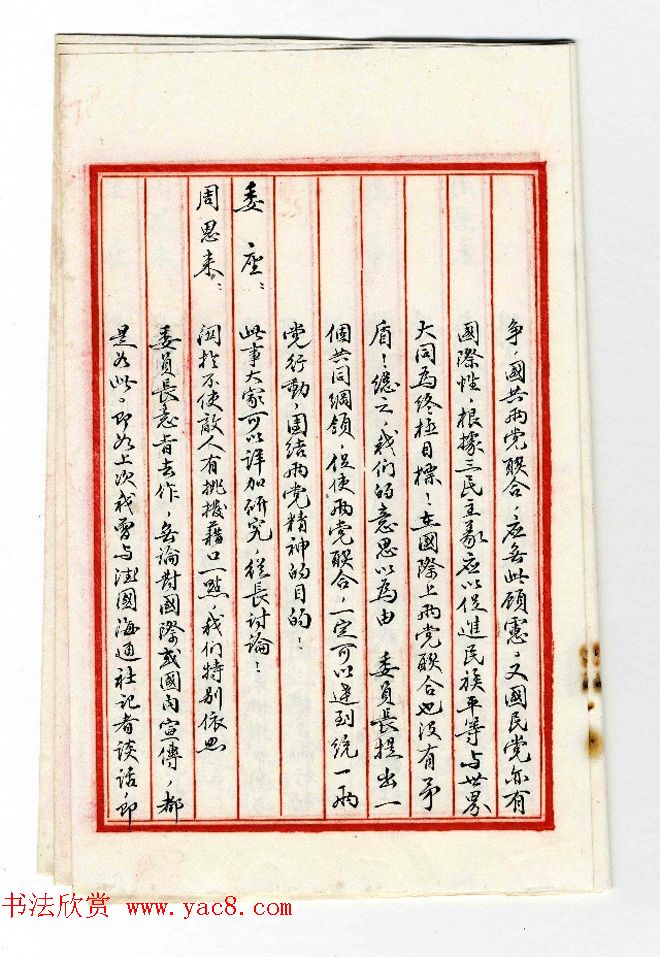 争，國共兩党聯合，应無此顾慮。又國民党亦有
國際性，根據三民主義应以促進民族平等与世界
大同為终極目標！在國際上兩党聯合也没有矛
盾！總之，我们的意思以為由　委員長提出一
個共同綱領，促使兩党聯合，一定可以達到统一兩
党行動，團结兩党精神的目的！
委　座：此事大家可以详加研究，從長讨論！
周恩来：関於不使敵人有挑撥藉口一點，我们特别依照
委員長意旨去作，無論對國際或國内宣傳，都
是如此。即如上次我曾与德國海通社记者谈话，即
书法欣赏 www.yac8.com